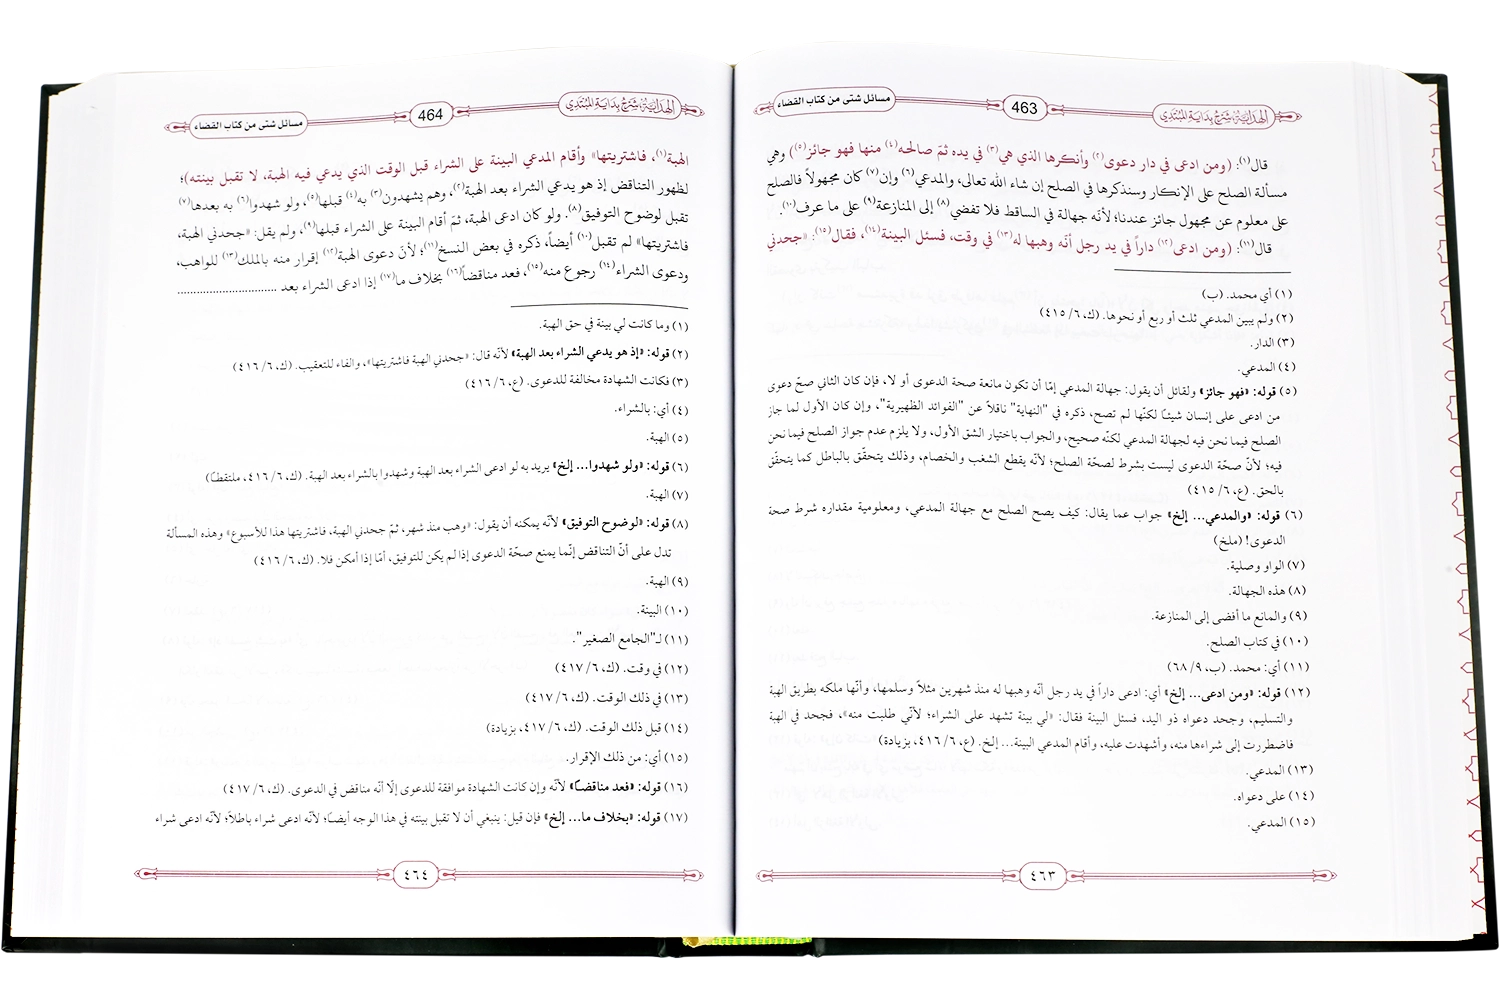 الهداية شرح بداية المبتدي
463
مسائل شتى من كتاب القضاء
قال(١): (ومن ادعى في دار دعوى(٢) وأنكرها الذي هي(٣) في يده ثمّ صالحه(٤) منها فهو جائز(٥)) وهي
مسألة الصلح على الإنكار وسنذكرها في الصلح إن شاء الله تعالى، والمدعي(٦) وإن(٧) كان مجهولاً فالصلح
على معلوم عن مجهول جائز عندنا؛ لأنّه جهالة في الساقط فلا تفضي(٨) إلى المنازعة(٩) على ما عرف(١٠).
قال(١١): (ومن ادعى(١٢) داراً في يد رجل أنّه وهبها له(١٣) في وقت، فسئل البينة(١٤)، فقال(١٥): «جحدني
(١) أي محمد. (ب)
(٢) ولم يبين المدعي ثلث أو ربع أو نحوها. (ك، ٦/ ٤١٥)
(٣) الدار.
(٤) المدعي.
(٥) قوله: «فهو جائز» ولقائل أن يقول: جهالة المدعي إمّا أن تكون مانعة صحة الدعوى أو لا، فإن كان الثاني صحّ دعوى
من ادعى على إنسان شيئا لكنّها لم تصح، ذكره في "النهاية" ناقلاً عن "الفوائد الظهيرية"، وإن كان الأول لما جاز
الصلح فيما نحن فيه لجهالة المدعي لكنّه صحيح، والجواب باختيار الشق الأول، ولا يلزم عدم جواز الصلح فيما نحن
فيه؛ لأنّ صحّة الدعوى ليست بشرط لصحّة الصلح؛ لأنّه يقطع الشغب والخصام، وذلك يتحقّق بالباطل كما يتحقّق
بالحق. (ع، ٦/ ٤١٥)
(٦) قوله: «والمدعي... إلخ» جواب عما يقال: كيف يصح الصلح مع جهالة المدعي، ومعلومية مقداره شرط صحة
الدعوى! (ملخ)
(٧) الواو وصلية.
(٨) هذه الجهالة.
(٩) والمانع ما أفضى إلى المنازعة.
(١٠) في كتاب الصلح.
(١١) أي: محمد. (ب، ٩/ ٦٨)
(١٢) قوله: «ومن ادعى... إلخ» أي: ادعى داراً في يد رجل أنّه وهبها له منذ شهرين مثلاً وسلمها، وأنّها ملكه بطريق الهبة
والتسليم، وجحد دعواه ذو اليد، فسئل البينة فقال: «لي بينة تشهد على الشراء؛ لأنّي طلبت منه»، فجحد في الهبة
فاضطررت إلى شراءها منه، وأشهدت عليه، وأقام المدعي البينة... إلخ. (ع، ٦/ ٤١٦، بزيادة)
(١٣) المدعي.
(١٤) على دعواه.
(١٥) المدعي.
٤٦٣
الهداية شرح بداية المبتدي
464
مسائل شتى من كتاب القضاء
الهبة(١)، فاشتريتها» وأقام المدعي البينة على الشراء قبل الوقت الذي يدعي فيه الهبة، لا تقبل بينته)؛
لظهور التناقض إذ هو يدعي الشراء بعد الهبة(٢)، وهم يشهدون(٣) به(٤) قبلها(٥)، ولو شهدوا(٦) به بعدها(٧)
تقبل لوضوح التوفيق(٨). ولو كان ادعى الهبة، ثمّ أقام البينة على الشراء قبلها(٩)، ولم يقل: «جحدني الهبة،
فاشتريتها» لم تقبل(١٠) أيضاً، ذكره في بعض النسخ(١١)؛ لأنّ دعوى الهبة(١٢) إقرار منه بالملك(١٣) للواهب،
ودعوى الشراء(١٤) رجوع منه(١٥)، فعد مناقضاً(١٦) بخلاف ما(١٧) إذا ادعى الشراء بعد ................................
(١) وما كانت لي بينة في حق الهبة.
(٢) قوله: «إذ هو يدعي الشراء بعد الهبة» لأنّه قال: «جحدني الهبة فاشتريتها»، والفاء للتعقيب. (ك، ٦/ ٤١٦)
(٣) فكانت الشهادة مخالفة للدعوى. (ع، ٦/ ٤١٦)
(٤) أي: بالشراء.
(٥) الهبة.
(٦) قوله: «ولو شهدوا... إلخ» يريد به لو ادعى الشراء بعد الهبة وشهدوا بالشراء بعد الهبة. (ك، ٦/ ٤١٦، ملتقطا)
(٧) الهبة.
(٨) قوله: «لوضوح التوفيق» لأنّه يمكنه أن يقول: «وهب منذ شهر، ثمّ جحدني الهبة، فاشتريتها هذا للأسبوع» وهذه المسألة
تدل على أنّ التناقض إنّما يمنع صحّة الدعوى إذا لم يكن للتوفيق، أمّا إذا أمكن فلا. (ك، ٦/ ٤١٦)
(٩) الهبة.
(١٠) البينة.
(١١) لـ"الجامع الصغير".
(١٢) في وقت. (ك، ٦/ ٤١٧)
(١٣) في ذلك الوقت. (ك، ٦/ ٤١٧)
(١٤) قبل ذلك الوقت. (ك، ٦/ ٤١٧، بزيادة)
(١٥) أي: من ذلك الإقرار.
(١٦) قوله: «فعد مناقضا» لأنّه وإن كانت الشهادة موافقة للدعوى إلّا أنّه مناقض في الدعوى. (ك، ٦/ ٤١٧)
(١٧) قوله: «بخلاف ما... إلخ» فإن قيل: ينبغي أن لا تقبل بينته في هذا الوجه أيضا؛ لأنّه ادعى شراء باطلاً؛ لأنّه ادعى شراء
٤٦٤